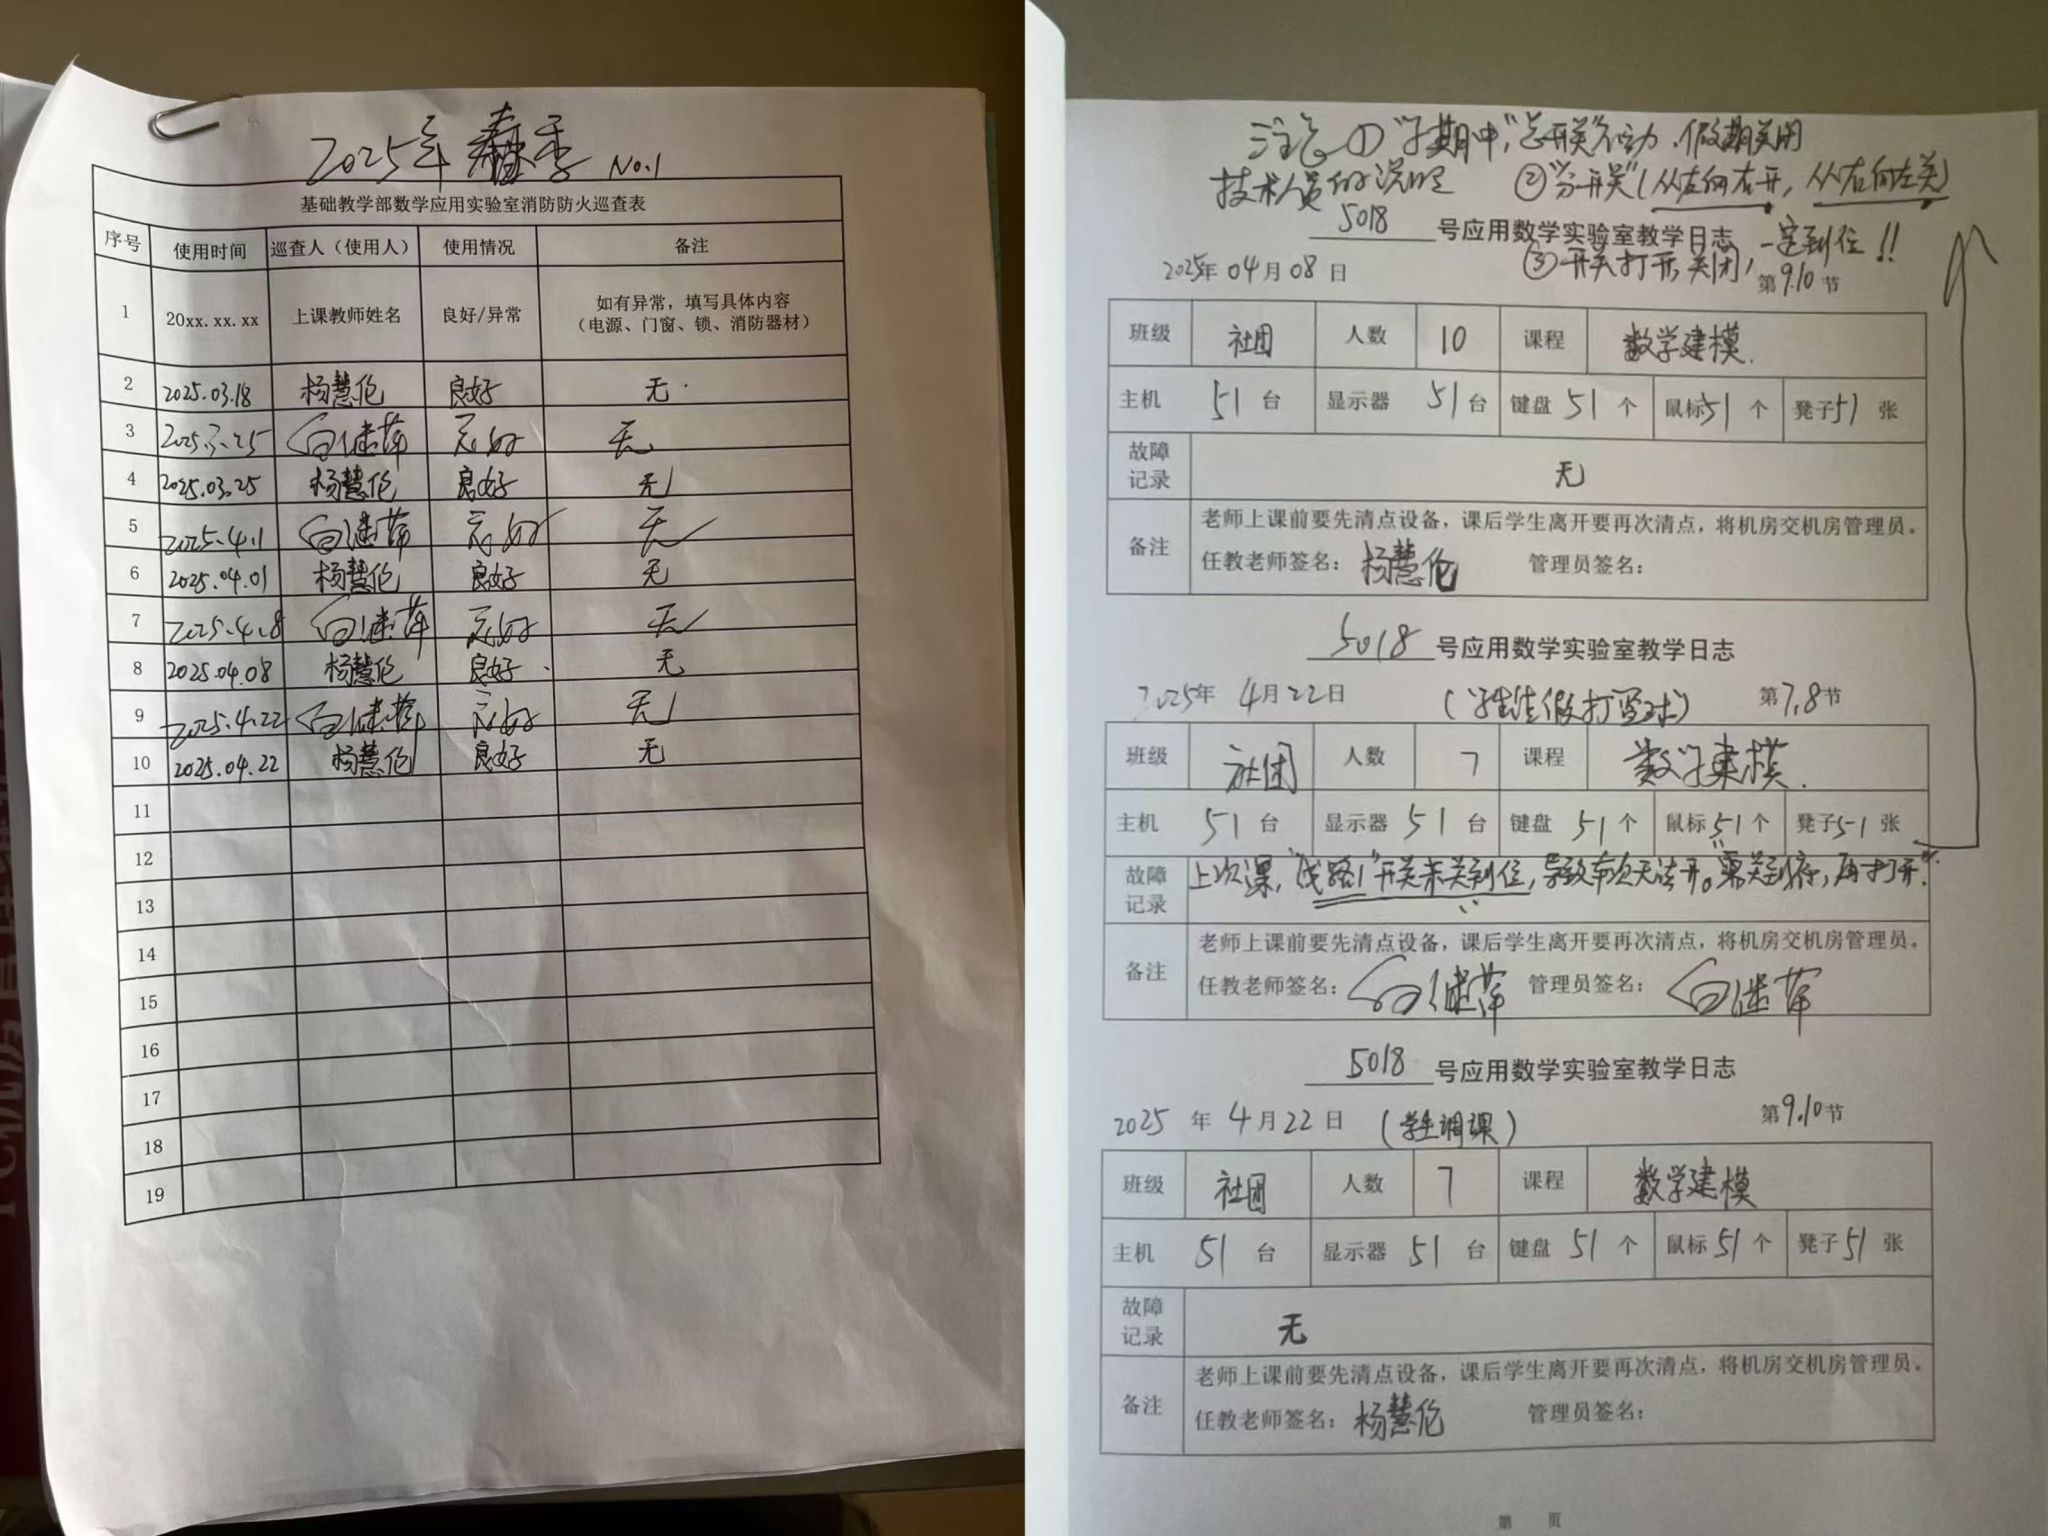 2025年 春季 No.1
基础教学部数学应用实验室消防防火巡查表
序号 使用时间 巡查人（使用人） 使用情况 备注
1 20xx.xx.xx 上课教师姓名 良好/异常 如有异常，填写具体内容
（电源、门窗、锁、消防器材）
2 2025.03.18 杨慧伦 良好 无
3 2025.3.25 白继萍 完好 无
4 2025.03.25 杨慧伦 良好 无
5 2025.4.1 白继萍 完好 无
6 2025.04.01 杨慧伦 良好 无
7 2025.4.8 白继萍 完好 无
8 2025.04.08 杨慧伦 良好 无
9 2025.4.22 白继萍 完好 无
10 2025.04.22 杨慧伦 良好 无
11
12
13
14
15
16
17
18
19
注意 ①"学期中"，"总开关"不动，假期关闭
技术人员的说明 ②"分开关"（从左向右开，从右向左关）
5018 号应用数学实验室教学日志 一定到位!!
③开关打开，关闭，
2025年 04月 08日 第9.10节
班级 社团 人数 10 课程 数学建模.
主机 51 台 显示器 51 台 键盘 51 个 鼠标 51 个 凳子 51 张
故障记录 无
备注 老师上课前要先清点设备，课后学生离开要再次清点，将机房交机房管理员。
任教老师签名： 杨慧伦 管理员签名：
5018 号应用数学实验室教学日志
2025年 4月 22日 第7,8节
班级 社团 人数 7 课程 数学建模.
主机 51 台 显示器 51 台 键盘 51 个 鼠标 51 个 凳子 51 张
故障记录 上次课，"线路1"开关未关到位，导致本次无法开。需关到底，再打开.
备注 老师上课前要先清点设备，课后学生离开要再次清点，将机房交机房管理员。
任教老师签名： 白继萍 管理员签名： 白继萍
5018 号应用数学实验室教学日志
2025 年 4月 22日 （学生调课） 第9.10节
班级 社团 人数 7 课程 数学建模
主机 51 台 显示器 51 台 键盘 51 个 鼠标 51 个 凳子 51 张
故障记录 无
备注 老师上课前要先清点设备，课后学生离开要再次清点，将机房交机房管理员。
任教老师签名： 杨慧伦 管理员签名：
第 页